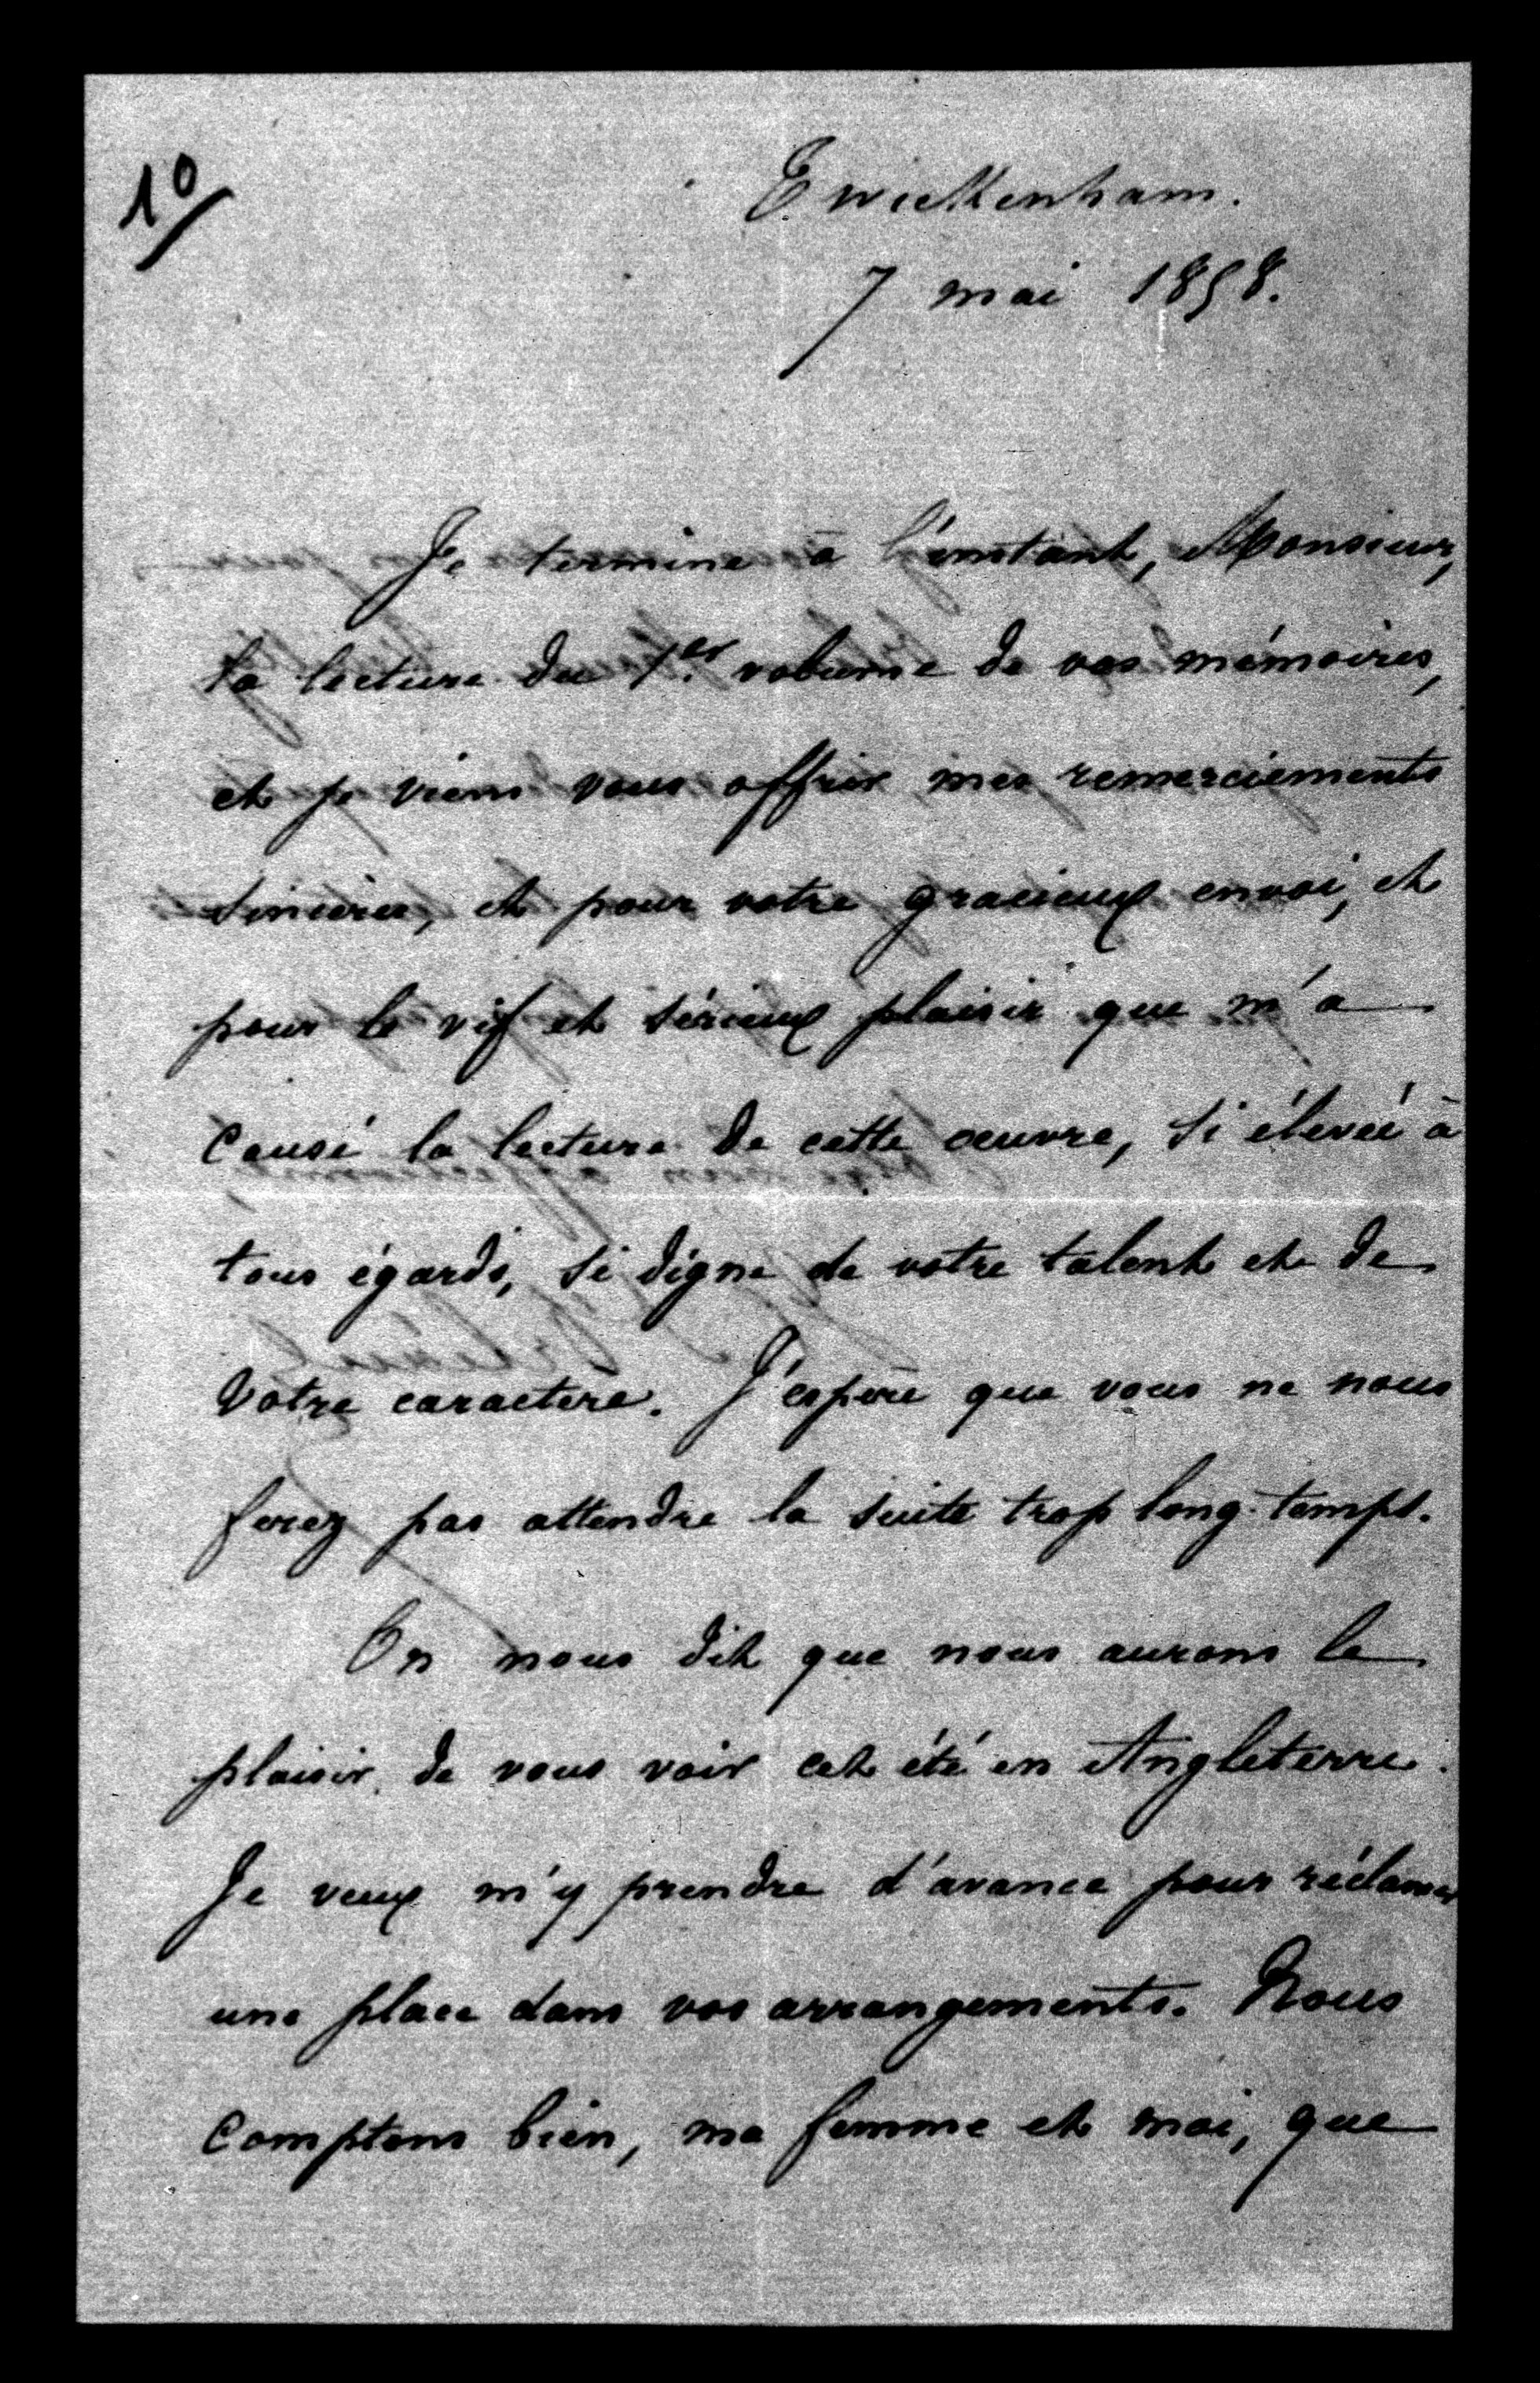 1º/
Twickenham.
7 mai 1858.
Je termine à l'instant, Monsieur,
la lecture du 1.er volume de vos mémoires,
et je viens vous offrir mes remerciements
sincères, et pour votre gracieux envoi, et
pour le vif et sérieux plaisir que m'a
causé la lecture de cette œuvre, si élevée à
tous égards, si digne de votre talent et de
votre caractère. J'espère que vous ne nous
ferez pas attendre la suite trop long-temps.
On nous dit que nous aurons le
plaisir de vous voir cet été en Angleterre.
Je veux m'y prendre d'avance pour réclamer
une place dans vos arrangements. Nous
comptons bien, ma femme et moi, que